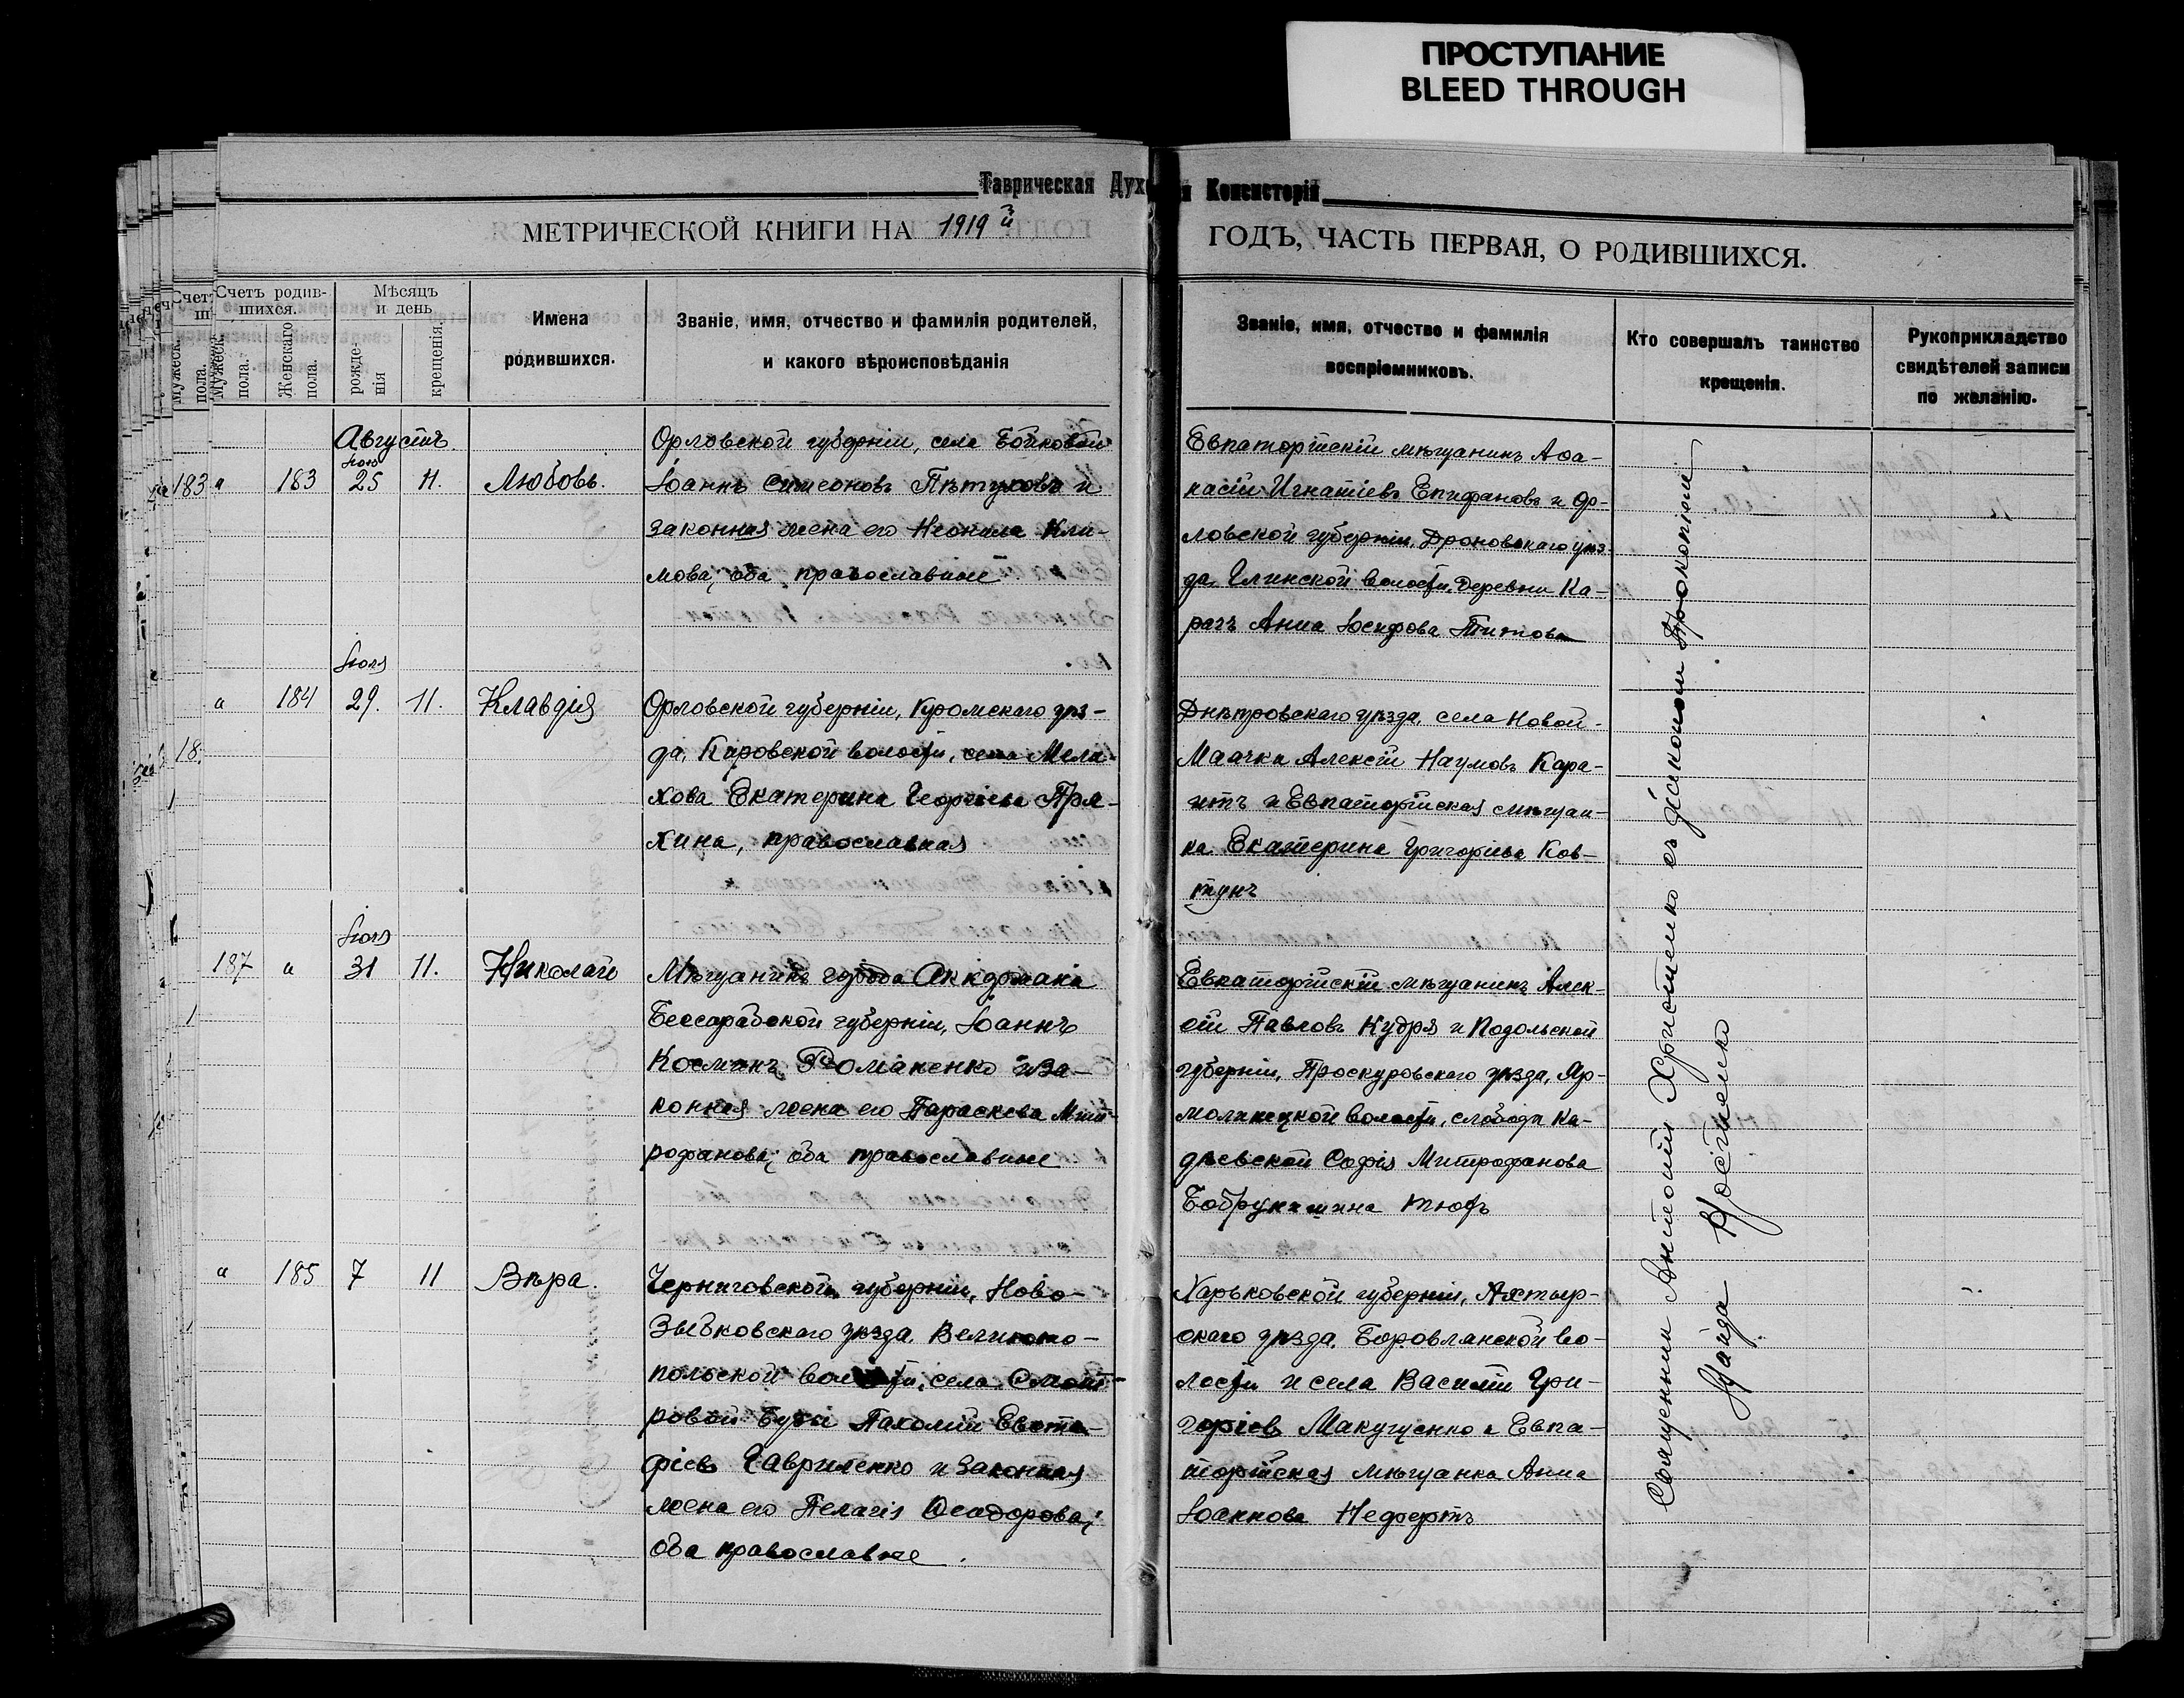 ПРОСТУПАНИЕ
BLEED THROUGH
Таврическая Дух й Консисторіи
МЕТРИЧЕСКОЙ КНИГИ НА 1919й ГОДЪ, ЧАСТЬ ПЕРВАЯ, О РОДИВШИХСЯ.
Счетъ родившихся.
Мужеск. пола.
Женскаго пола.
Мѣсяцъ и день
рожденія
крещенія.
Имена родившихся.
Званіе, имя, отчество и фамилія родителей,
и какого вѣроисповѣданія
Званіе, имя, отчество и фамилія
воспріемниковъ.
Кто совершалъ таинство
крещенія.
Рукоприкладство
свидѣтелей записи
по желанію.
Августъ.
Іюля
183 25 11. Любовь.
Орловской губерніи, села Бойковой
Іоаннъ Симеоновъ Пѣтуховъ и
законная жена его Неонила Кли-
мова, оба православные
Евпаторійскій мѣщанинъ Афа-
насій Игнатіевъ Епифановъ и Ор-
ловской губерніи, Дроновскаго уѣз-
да, Глинской волости, деревни Ка-
рачъ Анна Іосифова Титова
Іюля
184 29. 11. Клавдія
Орловской губерніи, Кромскаго уѣз-
да, Кировской волости, села Мела-
хова Екатерина Георгіева Пря-
хина, православная
Днѣпровскаго уѣзда, села Новой-
Маячки Алексій Наумовъ Кара-
итъ и Евпаторійская мѣщан-
ка Екатерина Григоріева Ков-
тунъ
Іюля
187 31 11. Николай
Мѣщанинъ города Аккермана
Бессарабской губерніи, Іоаннъ
Косминъ Романенко и за-
конная жена его Параскева Мит-
рофанова, оба православные
Евпаторійскій мѣщанинъ Алек-
сій Павловъ Кудря и Подольской
губерніи, Проскуровскаго уѣзда, Яр-
молинецкой волости, слободы Ка-
дѣевской Софія Митрофанова
185 7 11 Вѣра.
Черниговской губерніи, Ново-
Зыбковскаго уѣзда, Великото-
польской волости, села
ровой Буды Пахомій Евста-
фіевъ Гавриленко и законная
жена его Пелагія Ѳеодорова,
оба православные.
Харьковской губерніи, Ахтыр-
скаго уѣзда, Боровлянской во-
лости и села Василій Гри-
горіевъ и Евпа-
торійская мѣщанка Анна
Іоаннова
Священник Антоний Христенко съ діакономъ Прокопіемъ